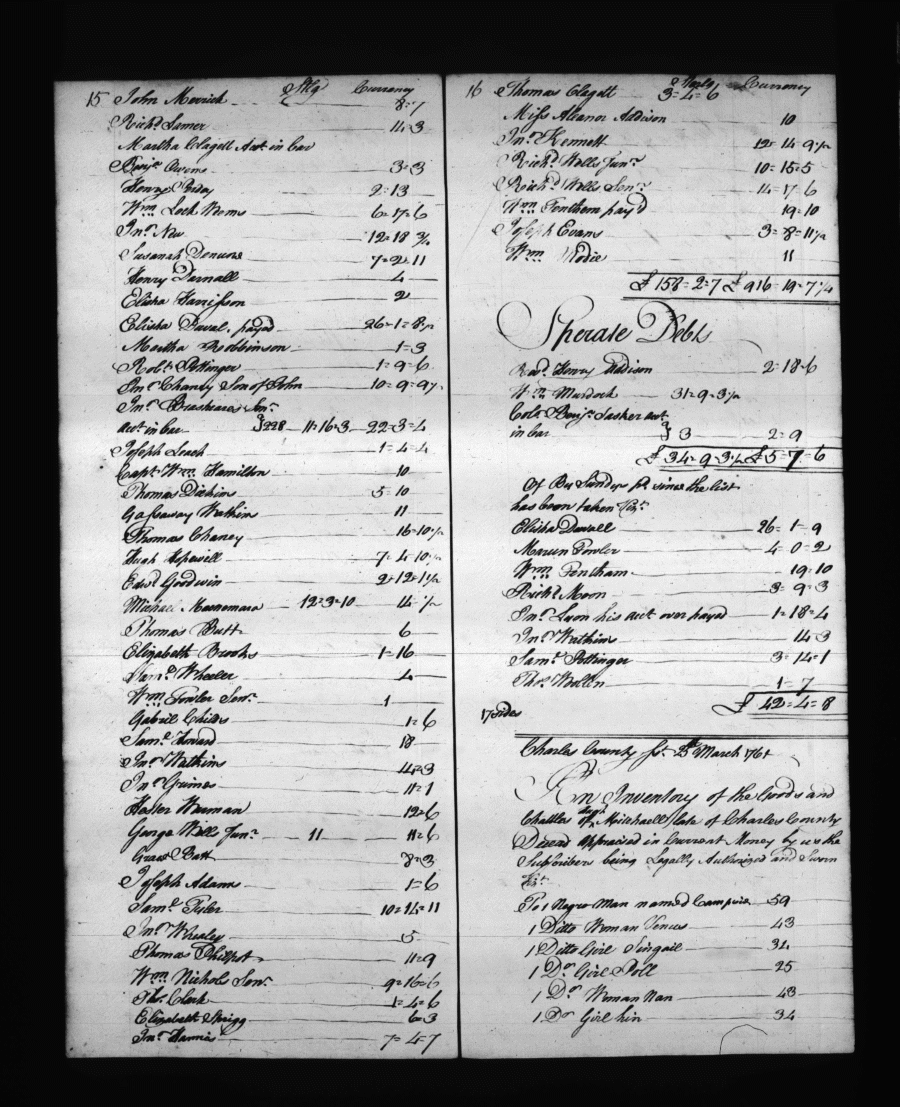 15 John Merrick Stlg Currency 8=7
Richd. Lamer 14=3
Martha Clagett Acct in bar
Benja. Owens 3=3
Henry Briday 2=13
Wm. Lock Weems 6=17=6
Jno. New 12=18 3/4
Susanah Denuone 7=2=11
Henry Darnall 4
Elisha Harrisson 2
Elisha Duval, payed 26=1=8 1/2
Martha Robbinson 1=3
Robt. Pottinger 1=9=6
Jno. Chaney Son of John 10=9=9 1/2
Jno. Brashears Senr.
acct in bar 228 11=16=3 22=3=4
Joseph Leach 1=4=4
Capt. Wm. Hamilton 10
Thomas Dickins 5=10
Gassaway Watkins 11
Thomas Chaney 16=10 1/2
Hugh Hopewill 7=4=10 1/2
Edwd. Goodwin 2=12=1 1/2
Michael Macnemara 12=3=10 14= 1/2
Thomas Butt 6
Elizabeth Brooks 1=16
Saml. Wheeler 4
Wm. Fowler Senr. 1
Gabriel Childs 1=6
Saml. Howard 18
Jno. Watkins 14=3
Jno. Grimes 11=1
Hester Warman 12=6
George Wells Junr. 11 11=6
Grace Batt 8=3
Joseph Adams 1=6
Saml. Tyler 10=14=11
Jno. Whealey 5
Thomas Philpot 11=9
Wm. Nichols Senr. 9=16=6
Thos. Clark 1=4=6
Elizabeth Sprigg 6=3
Jno. Hannis 7=4=7
16 Thomas Clagett Sterlg 3=4=6 Currency
Miss Aleanor Addison 10
Jno. Kennett 12=14=9 1/2
Richd. Wells Junr. 10=15=5
Richd. Wells Senr. 14=17=6
Wm. Fenthem pay'd 19=10
Joseph Evans 3=8=11 1/2
Wm. Wodie 11
£ 158=2=7 £ 916=19=7 1/4
Sperate Debts
Revd. Henry Addison 2=18=6
Wm. Murdock 31=9=3 1/2
Colo. Benja. Tasker act.
in bar 3 2=9
£ 34=9=3 1/2 £ 5=7=6
Of Bes Sundry ps. since the list
has been taken Vizt.
Elisha Duvall 26=1=9
Maren Fowler 4=0=2
Wm. Fentham 19=10
Richd. Moon 3=9=3
Jno. Lyon his acct over payed 1=18=4
Jno. Watkins 14=3
Saml. Pottinger 3=14=1
Thos. Wallin 1=7
17 Sides £ 42=4=8
Charles County Sct. 25th March 1761
An Inventory of the Goods and
Chattles of Michaell late of Charles County
Deceasd Appraised in Current Money by us the
Subscribers being Legally Authorized and Sworn
Vizt.
To 1 Negro Man named Campire 59
1 Ditto Woman Venus 43
1 Ditto Girl 34
1 Do. Girl Poll 25
1 Do. Woman Nan 43
1 Do. Girl 34